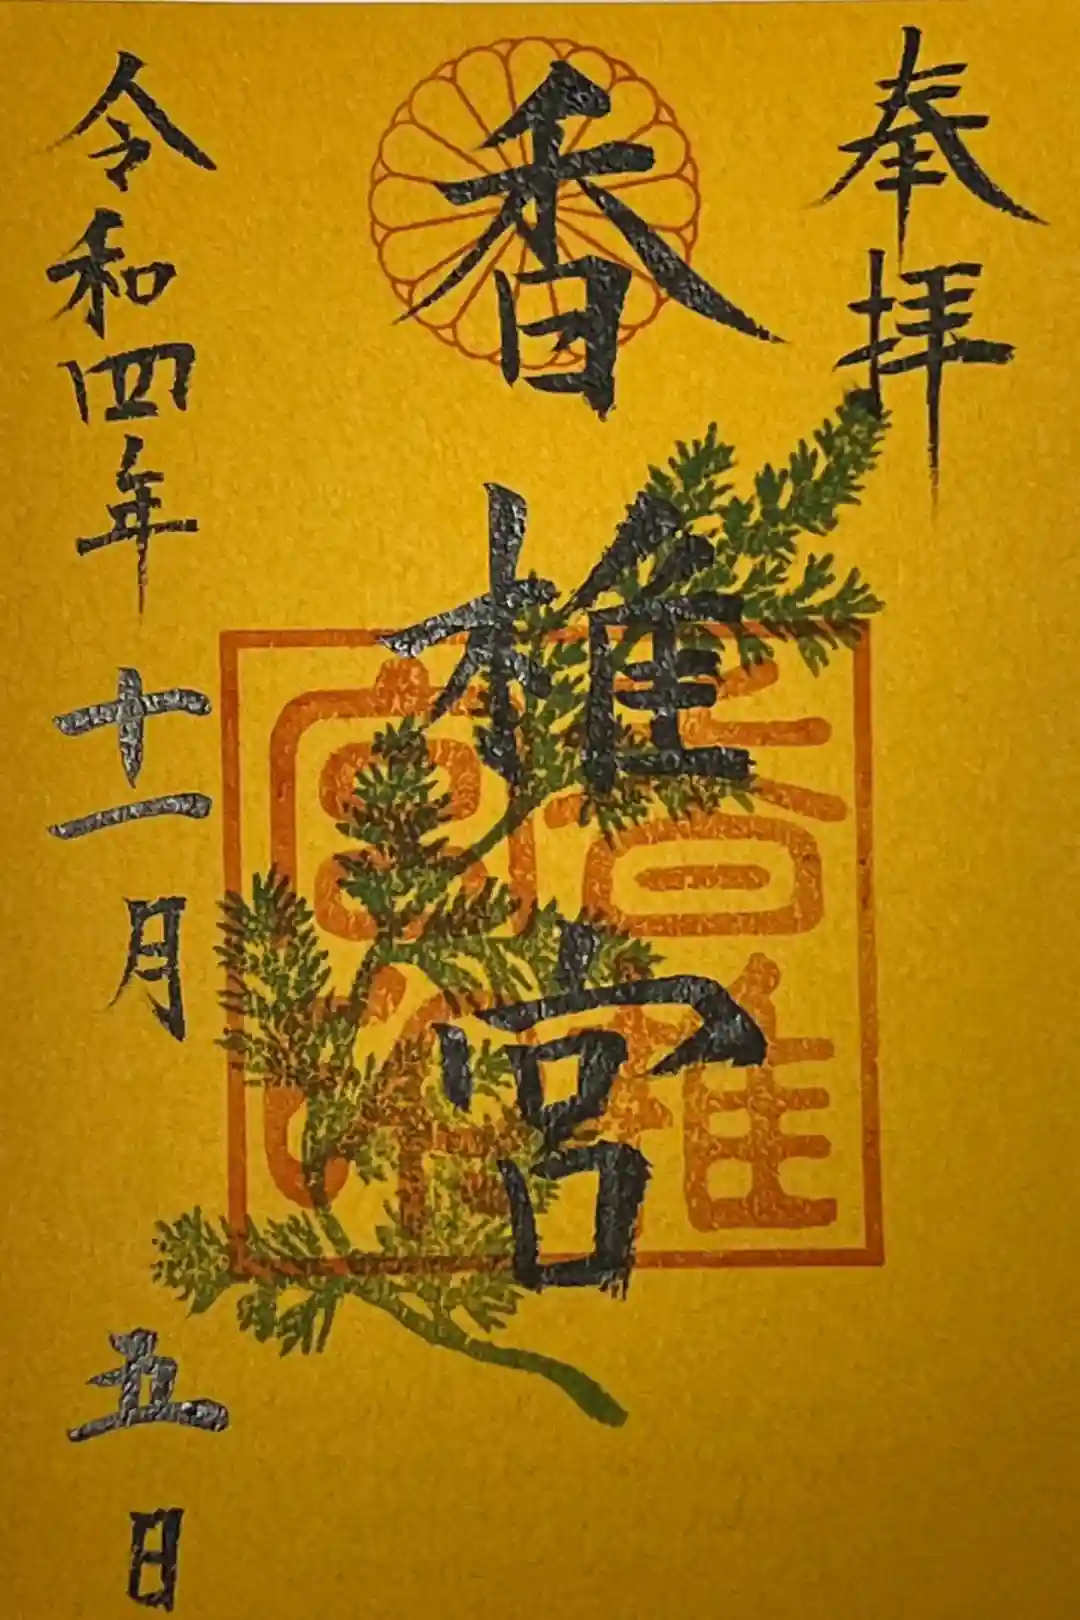 奉拝
香椎宮
香椎宮印
令和四年十一月五日